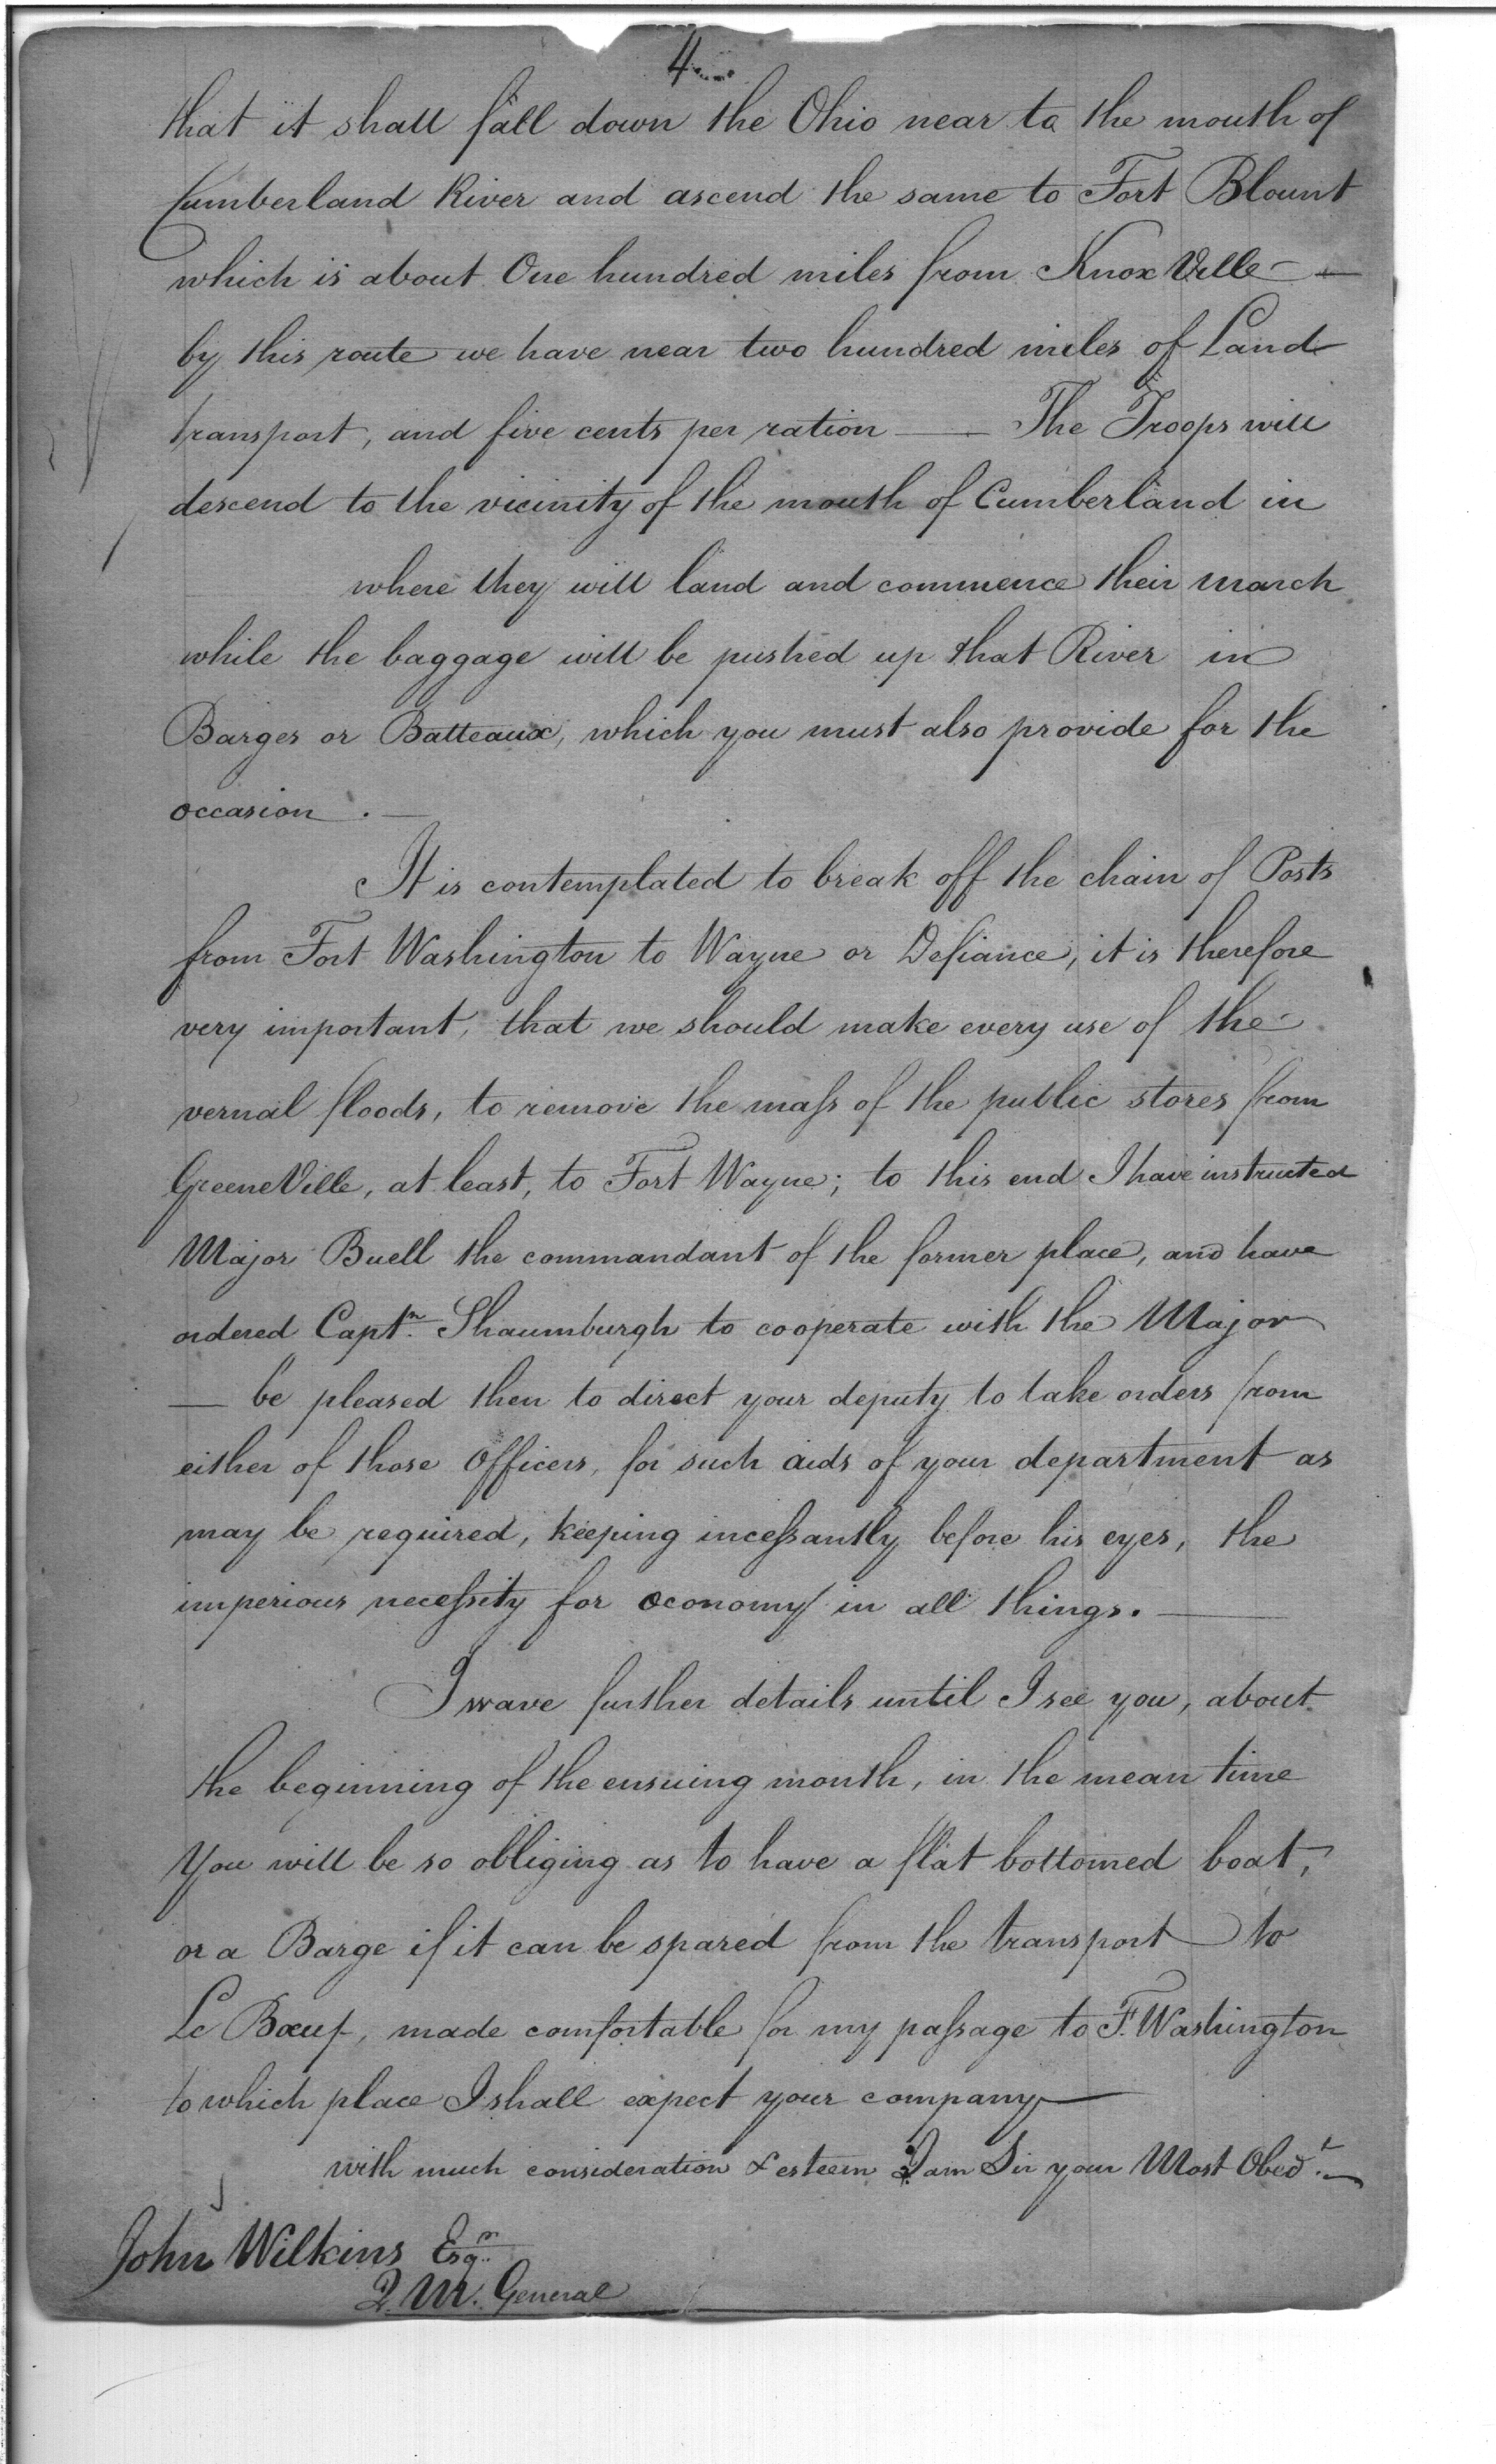 4
that it shall fall down the Ohio near to the mouth of
Cumberland River and ascend the same to Fort Blount
which is about One hundred miles from Knox Ville —
by this route we have near two hundred miles of Land
transport, and five cents per ration — The Troops will
descend to the vicinity of the mouth of Cumberland in
where they will land and commence their march
while the baggage will be pushed up that River in
Barges or Batteaux, which you must also provide for the
occasion . —
It is contemplated to break off the chain of Posts
from Fort Washington to Wayne or Defiance, it is therefore
very important, that we should make every use of the
vernal floods, to remove the maſs of the public stores from
GreeneVille, at least, to Fort Wayne; to this end I have instructed
Major Buell the commandant of the former place, and have
ordered Captn. Shaumburgh to cooperate with the Major
— be pleased then to direct your deputy to take orders from
either of those Officers, for such aids of your department as
may be required, keeping inceſsantly before his eyes, the
imperious neceſsity for oconomy in all things. —
I wave further details until I see you, about
the beginning of the ensuing month, in the mean time
You will be so obliging as to have a flat bottomed boat,
or a Barge if it can be spared from the transport to
Le Bœuf, made comfortable for my paſsage to F. Washington
to which place I shall expect your company —
with much consideration & esteem I am Sir your Most Obedt. —
John Wilkins Esqr.
Q. M. General